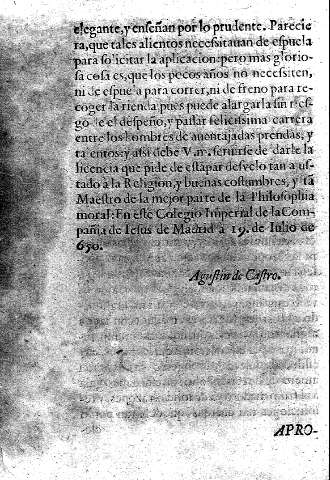 elegante, y enseñan por lo prudente. Parecie
ra, que tales alientos necessitauan de espuela
para solicitar la aplicacion: pero mas glorio-
sa cosa es, que los pocos años no necessiten,
ni de espuela para correr, ni de freno para re-
coger la rienda: pues puede alargarla sin ries-
go de el despeño, y passar felicissima carrera
entre los hombres de auentajadas prendas, y
talentos: y assi debe V.m. seruirse de darle la
licencia que pide de estãpar desvelo tan a jus-
tado à la Religion, y buenas costumbres, y tã
Maestro de la mejor parte de la Philosophia
moral: En este Colegio Imperial de la Com-
pañia de Iesus de Madrid à 19. de Iulio de
650.
Agustin de Castro.
APRO-